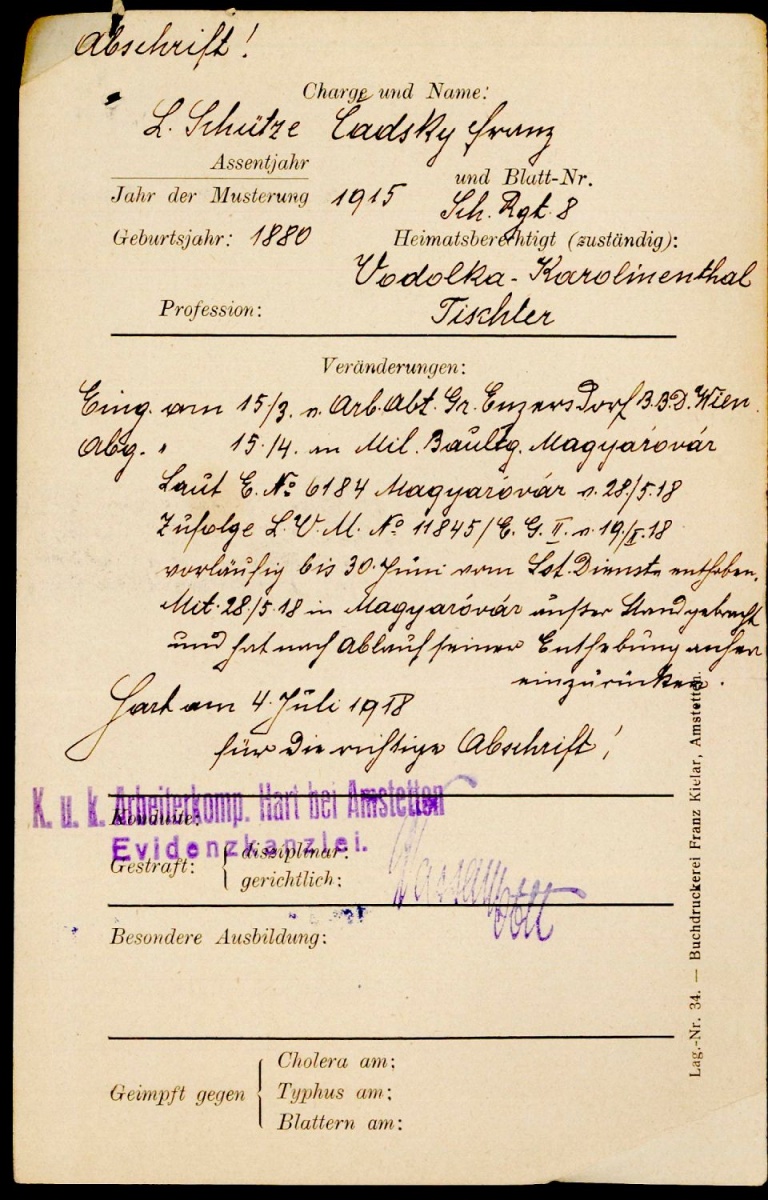 Abschrift!
Charge und Name:
L. Schütze Čadsky Franz
Assentjahr
Jahr der Musterung 1915 und Blatt-Nr.
Sch. Rgt. 8
Geburtsjahr: 1880 Heimatsberechtigt (zuständig):
Vodolka - Karolinenthal
Profession: Tischler
Veränderungen:
Eing. am 15/3. v. Arb. Abt. Gr. Enzersdorf B.B.D. Wien.
Abg. " 15./4. an Mil. Baultg. Magyaróvár
Laut E. No 6184 Magyaróvár v. 28./5.18
Zufolge L. V. M. No 11845/E. G. II. v. 19./I.18
vorläufig bis 30. Juni vom Lst. Dienste enthoben.
Mit 28./5.18 in Magyaróvár außer Stand gebracht
und hat nach Ablauf seiner Enthebung anher
einzurücken.
Hart am 4. Juli 1918
für die richtige Abschrift!
K. u. k. Arbeiterkomp. Hart bei Amstetten
Konduite:
Evidenzkanzlei.
Gestraft: { disziplinar:
gerichtlich:
Besondere Ausbildung:
Geimpft gegen { Cholera am:
Typhus am:
Blattern am:
Lag.-Nr. 34. — Buchdruckerei Franz Kielar, Amstetten.